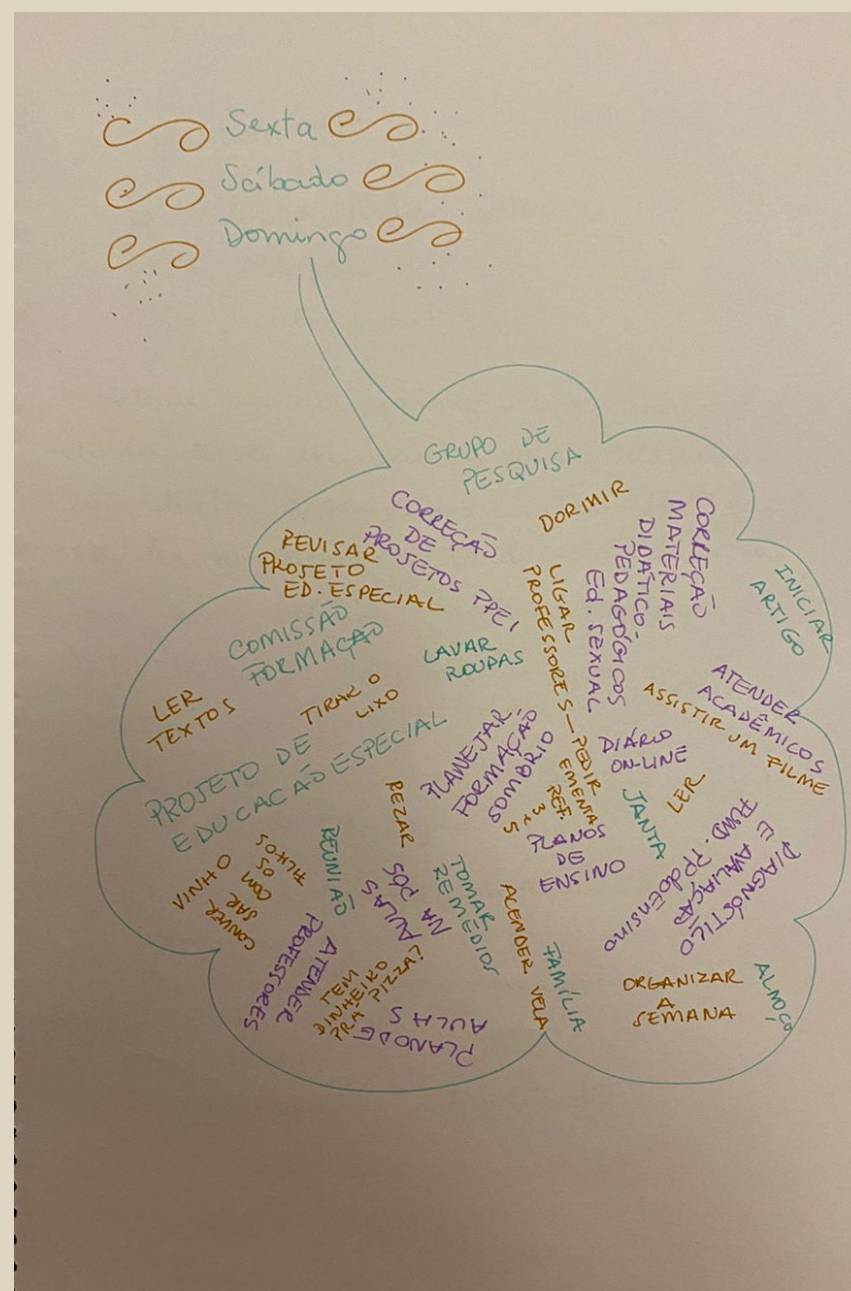 Sexta
Sábado
Domingo
GRUPO DE
PESQUISA
CORREÇÃO
DE
PROJETOS PPEI
DORMIR
CORREÇÃO
MATERIAIS
DIDÁTICO-
PEDAGÓGICOS
Ed. SEXUAL
INICIAR
ARTIGO
REVISAR
PROJETO
ED. ESPECIAL
COMISSÃO
FORMAÇÃO
LAVAR
ROUPAS
LIGAR
PROFESSORES — PEDIR
EMENTA
REF.
5 + 3
ATENDER
ACADÊMICOS
ASSISTIR UM FILME
LER
TEXTOS
TIRAR O
LIXO
PROJETO DE
EDUCACÃO ESPECIAL
PLANEJAR
FORMAÇÃO
SOMBRIO
DIÁRIO
ON-LINE
LER
JANTA
REZAR
PLANOS
DE
ENSINO
DIAGNÓSTICO
E AVALIAÇÃO
FUND. PP do Ensino
VINHO
CONVER
SAR
COM
OS
FILHOS
REUNIÃO
AULAS
NA PÓS
TOMAR
REMÉDIOS
ACENDER VELA
FAMÍLIA
ATENDER
PROFESSORES
TEM
DINHEIRO
PRÁ PIZZA?
PLANO DE
AULAS
ORGANIZAR
A
SEMANA
ALMOÇO